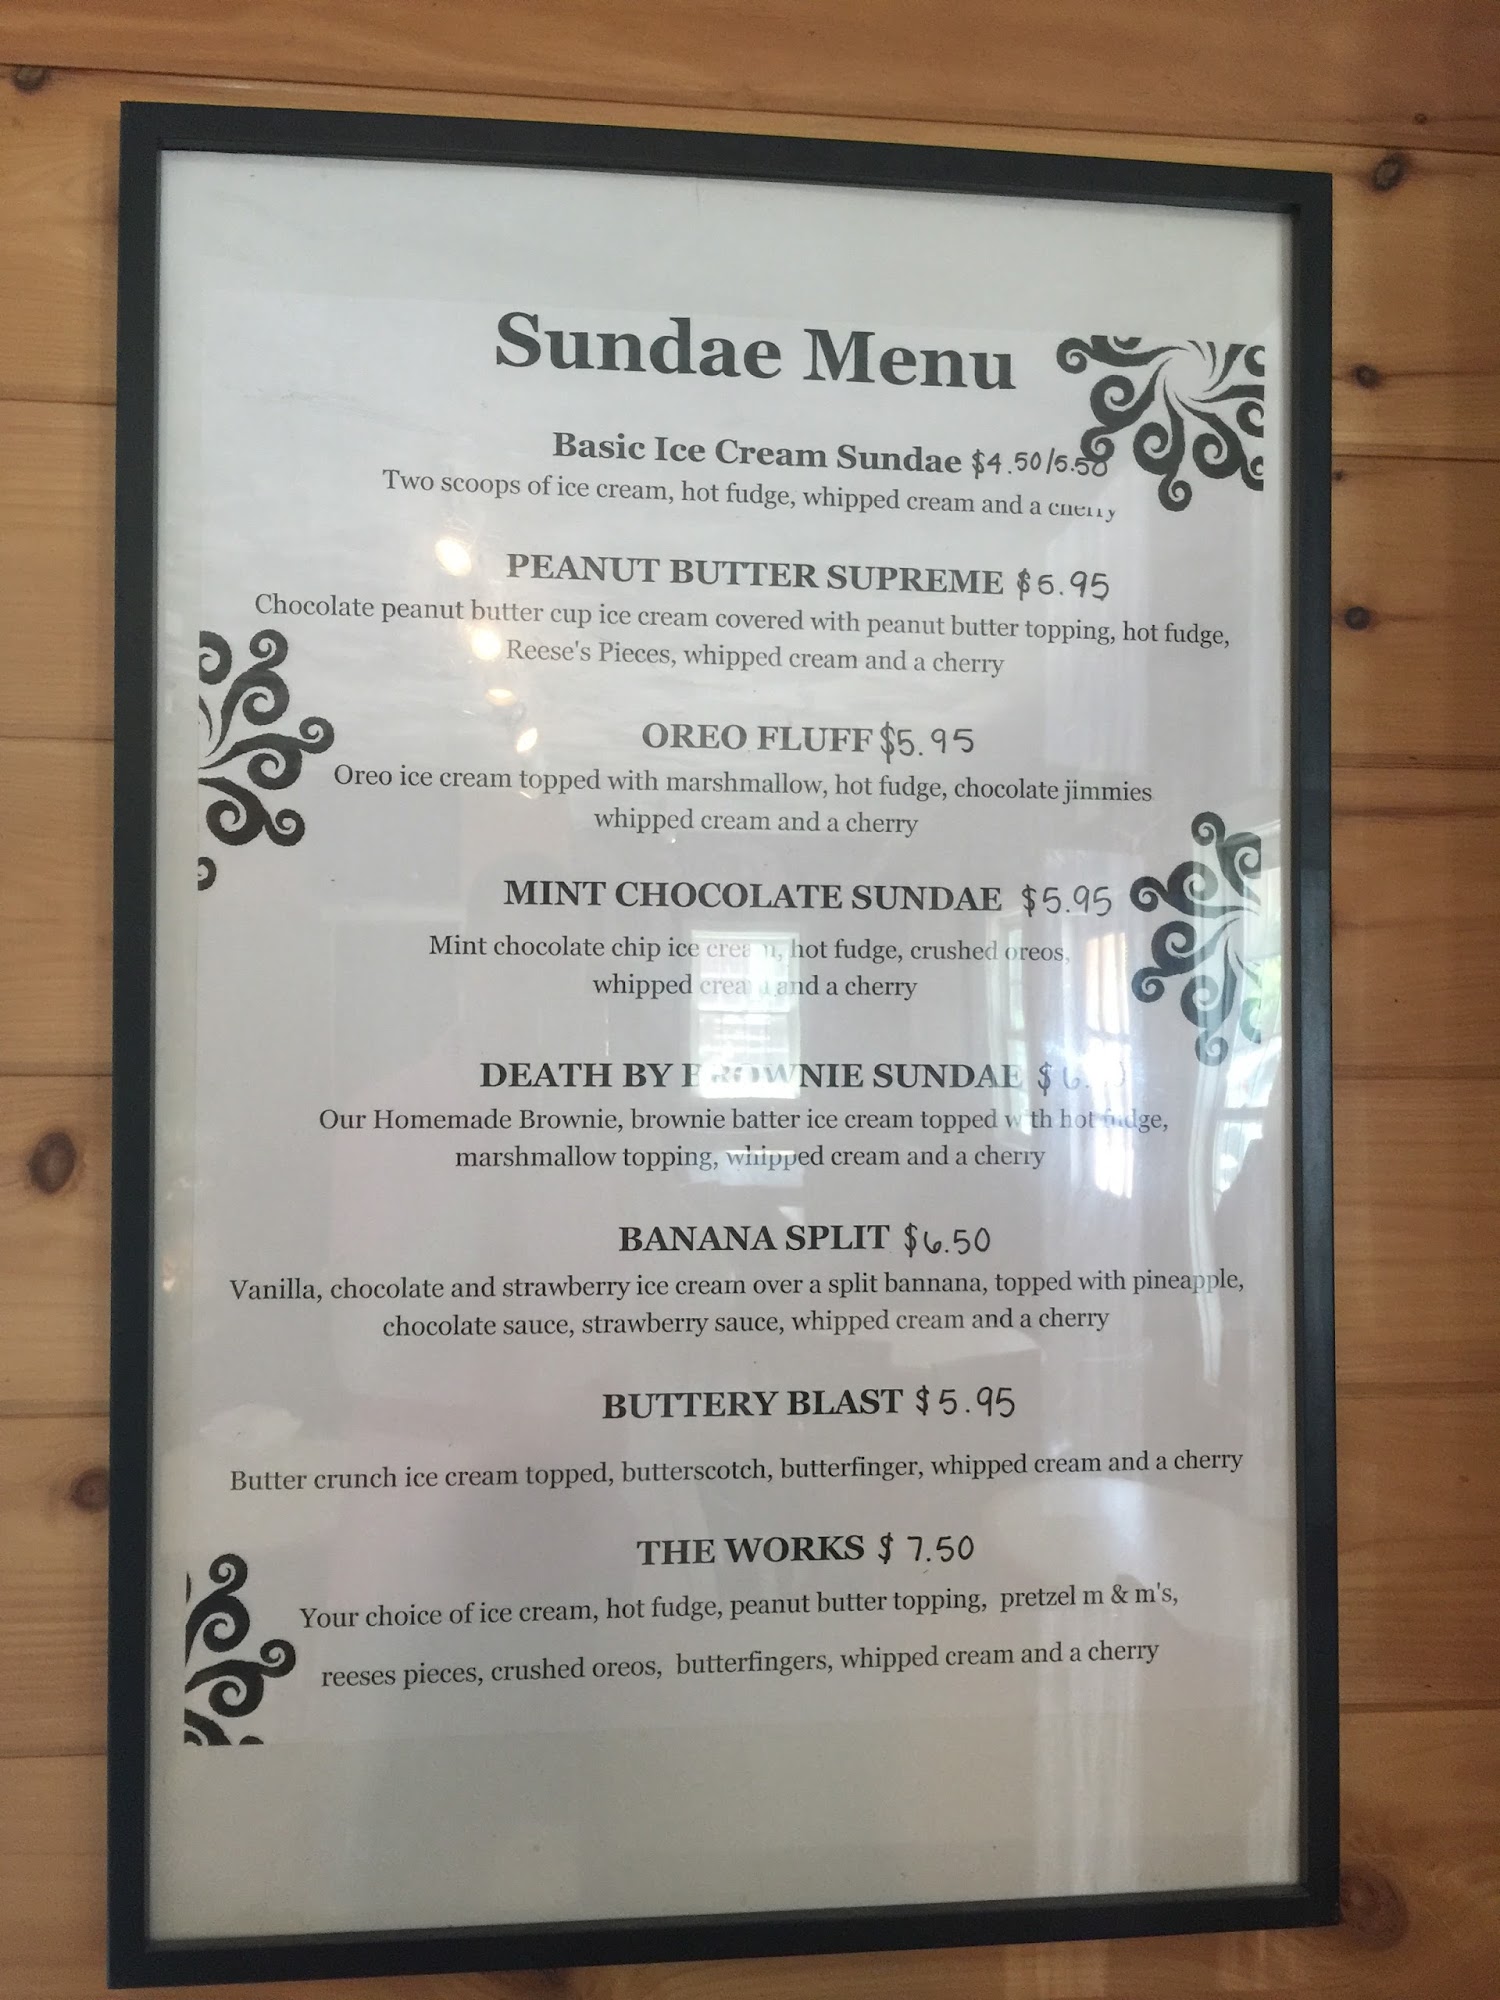 Sundae Menu
Basic Ice Cream Sundae $4.50/5.50
Two scoops of ice cream, hot fudge, whipped cream and a cherry
PEANUT BUTTER SUPREME $5.95
Chocolate peanut butter cup ice cream covered with peanut butter topping, hot fudge,
Reese's Pieces, whipped cream and a cherry
OREO FLUFF $5.95
Oreo ice cream topped with marshmallow, hot fudge, chocolate jimmies
whipped cream and a cherry
MINT CHOCOLATE SUNDAE $5.95
Mint chocolate chip ice cream, hot fudge, crushed oreos,
whipped cream and a cherry
DEATH BY BROWNIE SUNDAE
Our Homemade Brownie, brownie batter ice cream topped with hot fudge,
marshmallow topping, whipped cream and a cherry
BANANA SPLIT $6.50
Vanilla, chocolate and strawberry ice cream over a split bannana, topped with pineapple,
chocolate sauce, strawberry sauce, whipped cream and a cherry
BUTTERY BLAST $5.95
Butter crunch ice cream topped, butterscotch, butterfinger, whipped cream and a cherry
THE WORKS $ 7.50
Your choice of ice cream, hot fudge, peanut butter topping, pretzel m & m's,
reeses pieces, crushed oreos, butterfingers, whipped cream and a cherry